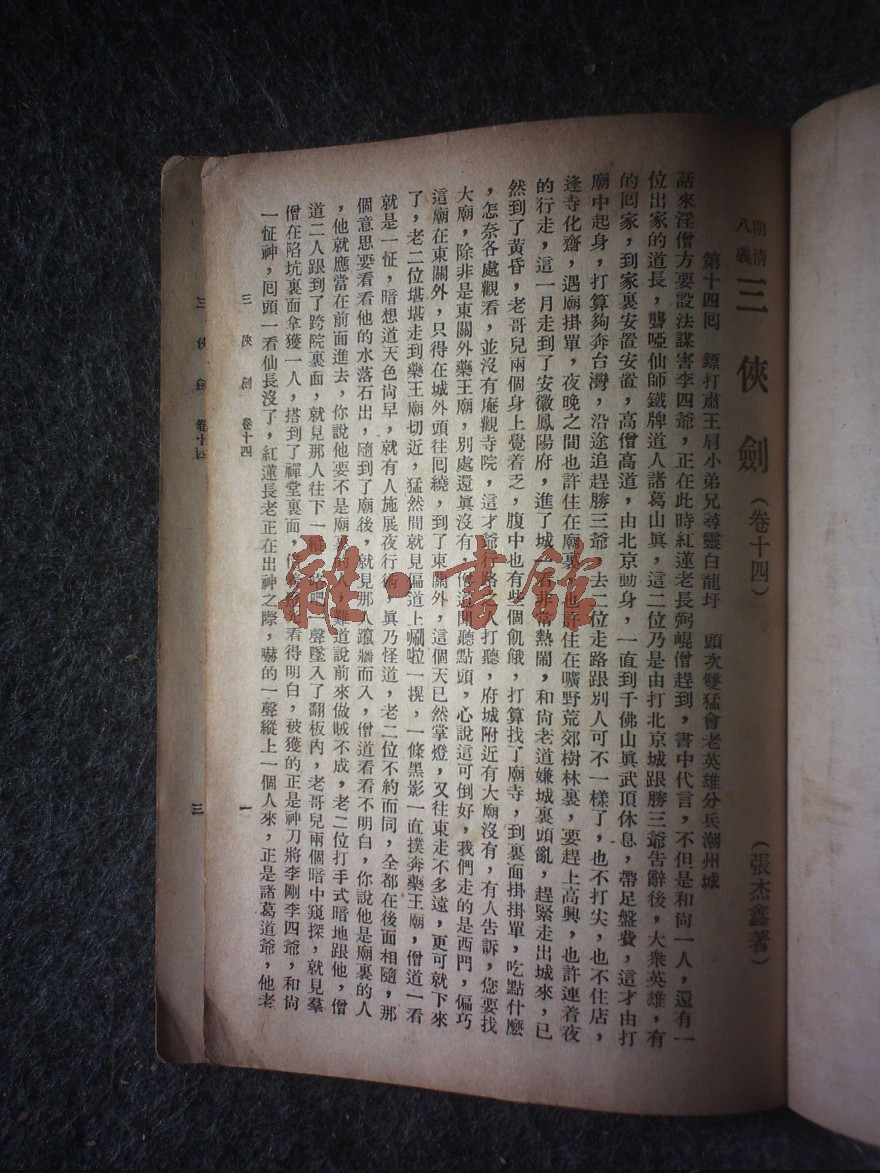 明清八義 三俠劍 (卷十四) (張杰鑫著)
第十四囘 鏢打肅王肩小弟兄尋靈白龍圩 頭次雙猛會老英雄分兵潮州城
話來淫僧方要設法謀害李四爺，正在此時紅蓮老長弼崐僧趕到，書中代言，不但是和尚一人，還有一
位出家的道長，聾啞仙師鐵牌道人諸葛山眞，這二位乃是由打北京城跟勝三爺告辭後，大衆英雄，有
的囘家，到家裏安置安置，高僧高道，由北京動身，一直到千佛山眞武頂休息，帶足盤費，這才由打
廟中起身，打算夠奔台灣，沿途追趕勝三爺，去二位走路跟別人可不一樣了，也不打尖，也不住店，
逢寺化齋，遇廟掛單，夜晚之間也許住在廟裏，也許住在曠野荒郊樹林裏，要趕上高興，也許連着夜
的行走，這一月走到了安徽鳳陽府，進了城 非常熱鬧，和尚老道嫌城裏頭亂，趕緊走出城來，已
然到了黃昏，老哥兒兩個身上覺着乏，腹中也有些個飢餓，打算找了廟寺，到裏面掛掛單，吃點什麽
，怎奈各處觀看，並沒有庵觀寺院，這才爺行路 人打聽，府城附近有大廟沒有，有人告訴，您要找
大廟，除非是東關外藥王廟，別處還眞沒有，僧道聞聽點頭，心說這可倒好，我們走的是西門，偏巧
這廟在東關外，只得在城外頭往囘繞，到了東關外，這個天已然掌燈，又往東走不多遠，更可就下來
了，老二位堪堪走到藥王廟切近，猛然間就見偏道上唰啦一提，一條黑影一直撲奔藥王廟，僧道一看
就是一怔，暗想道天色尙早，就有人施展夜行術 眞乃怪道，老二位不約而同，全都在後面相隨，那
個意思要看看他的水落石出，隨到了廟後，就見那人躥牆而入，僧道看看不明白，你說他是廟裏的人
，他就應當在前面進去，你說他要不是廟 人，難道說前來做賊不成，老二位打手式暗地跟他，僧
道二人跟到了跨院裏面，就見那人往下一縱 咯吧一聲墜入了翻板內，老哥兒兩個暗中窺探，就見羣
僧在陷坑裏面拿獲一人，搭到了禪堂裏面， 看得明白，被獲的正是神刀將李剛李四爺，和尚
一怔神，囘頭一看仙長沒了，紅蓮長老正在出神之際，嚇的一聲縱上一個人來，正是諸葛道爺，他老
三俠劍 卷十四 一
三俠劍 卷十四 三
雜·書館